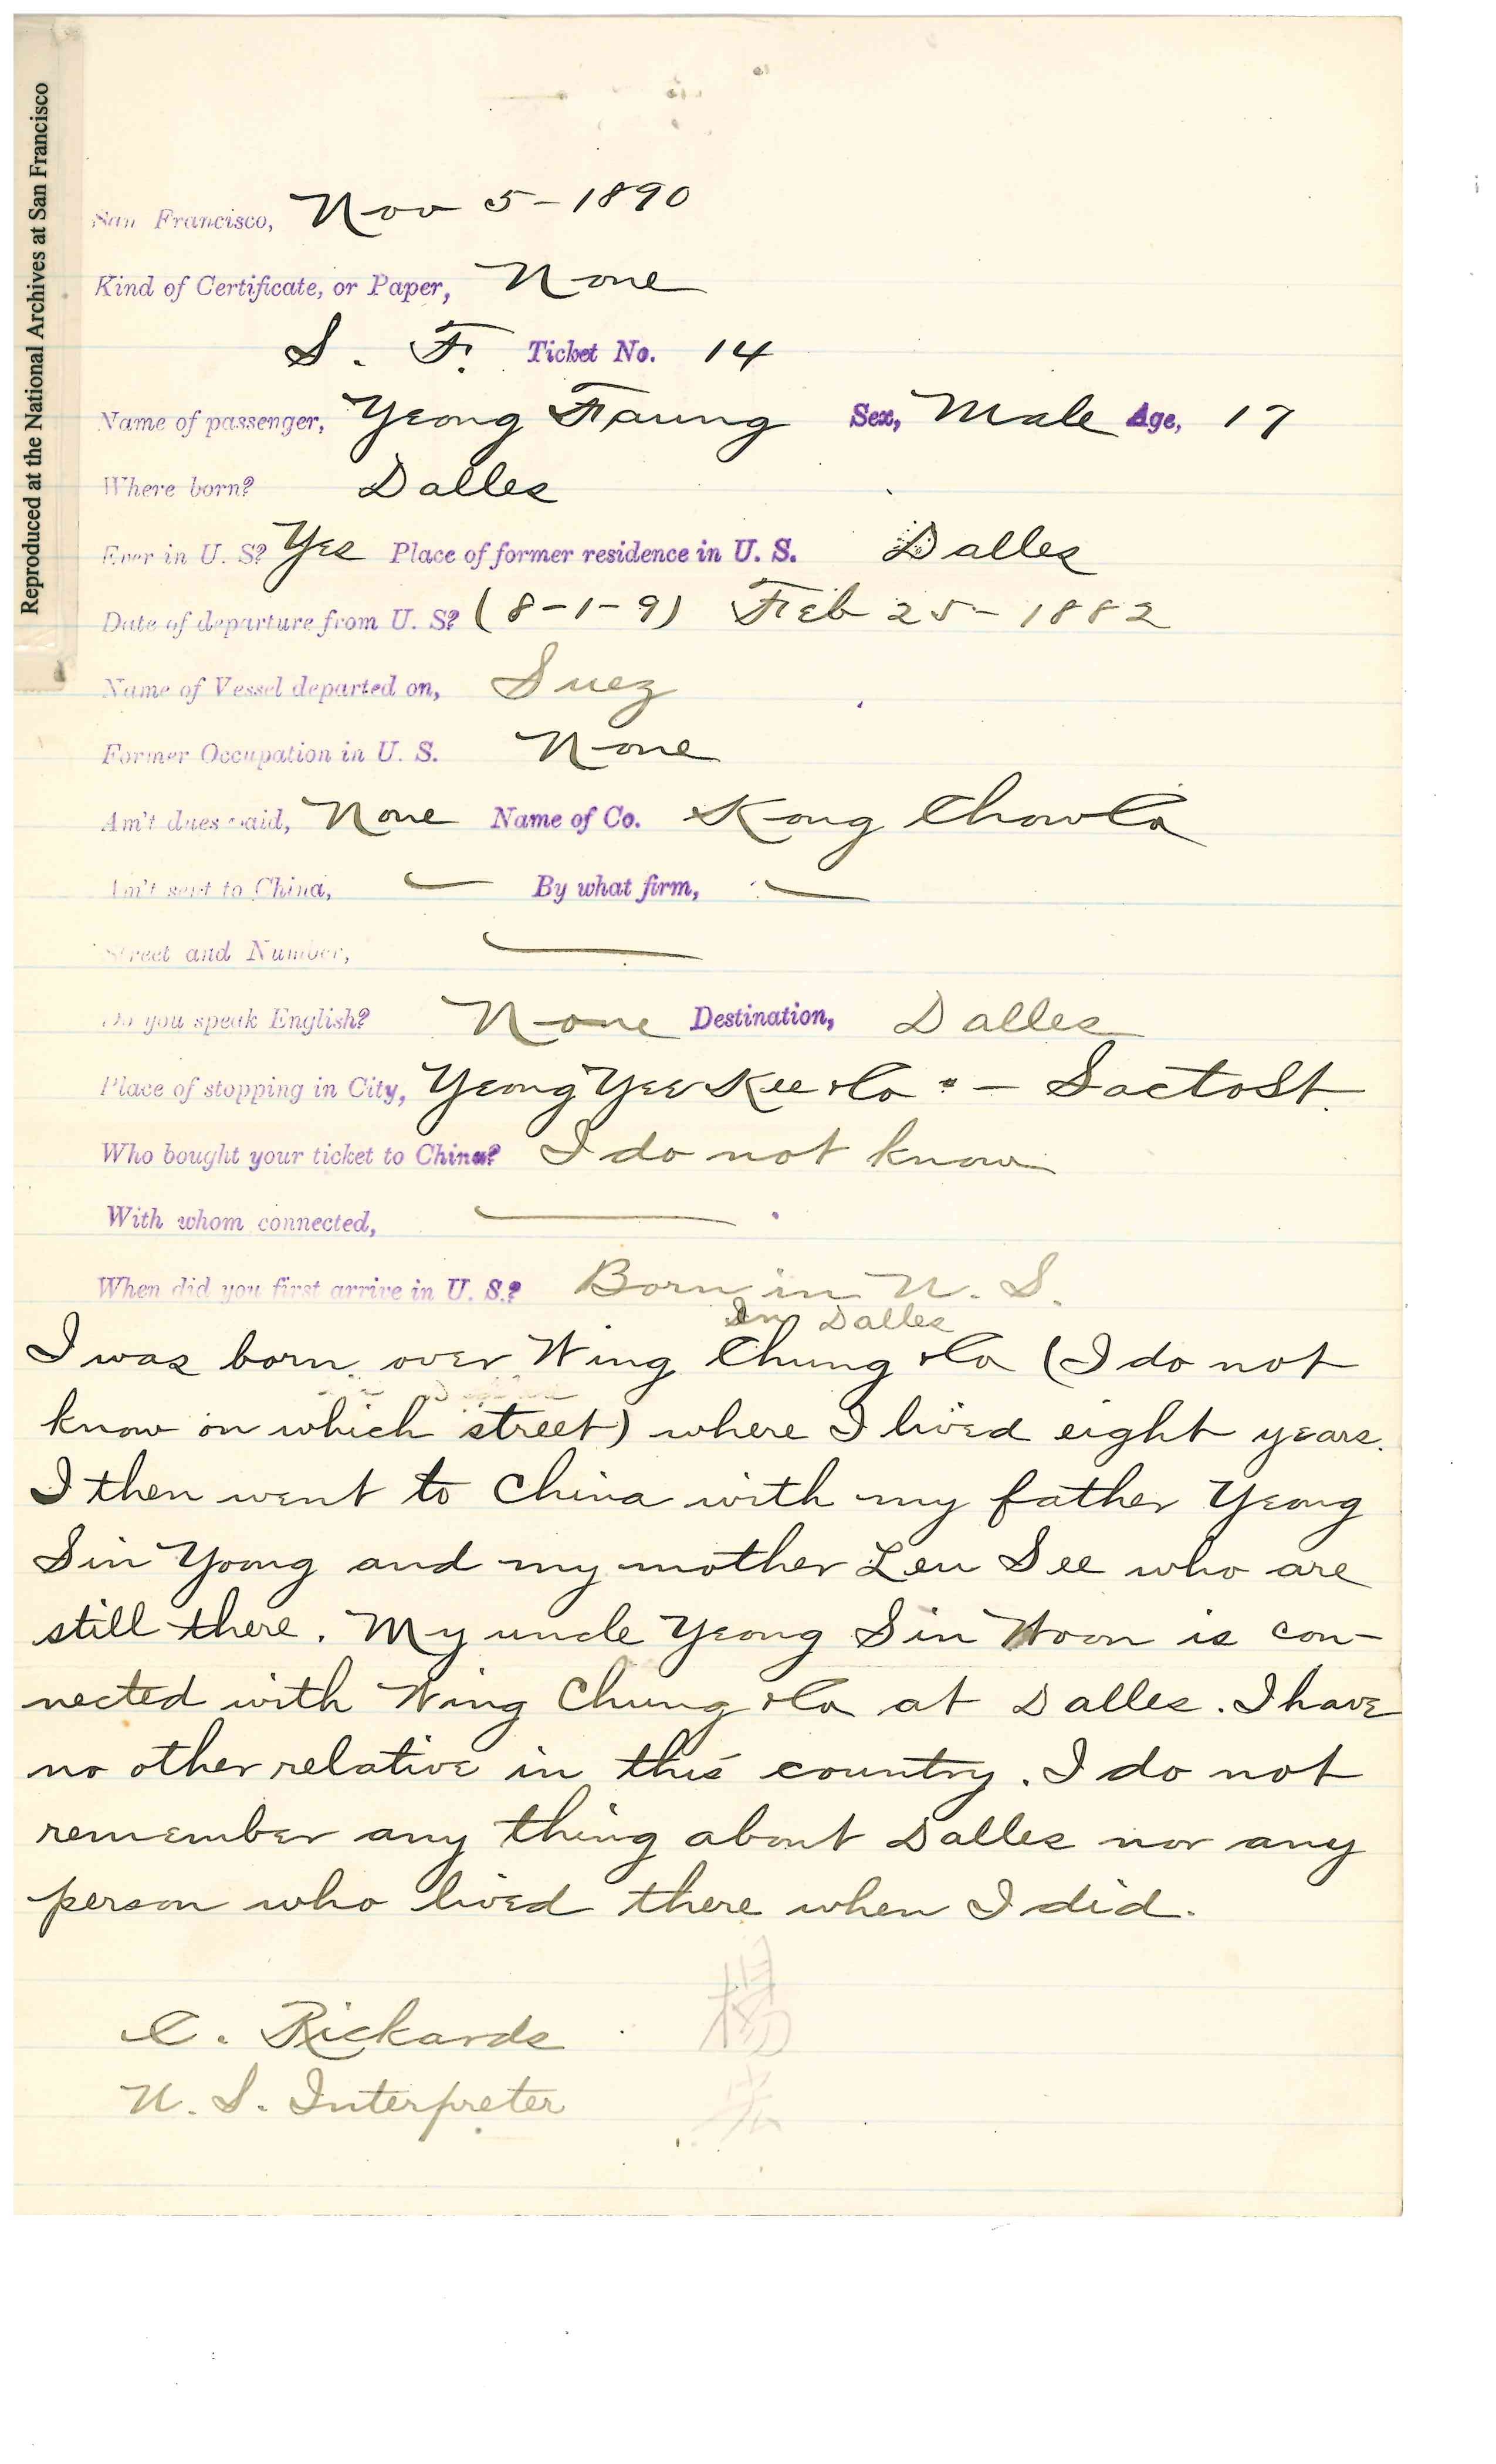 Reproduced at the National Archives at San Francisco
San Francisco, Nov 5-1890
Kind of Certificate, or Paper, None
S. F. Ticket No. 14
Name of passenger, Yeong Faung Sex, Male Age, 17
Where born? Dalles
Ever in U. S? Yes Place of former residence in U. S. Dalles
Date of departure from U. S? (8-1-9) Feb 25-1882
Name of Vessel departed on, Suez
Former Occupation in U. S. None
Am't dues paid, None Name of Co. Kong Chow Co
Am't sent to China, — By what firm, —
Street and Number, —
Do you speak English? None Destination, Dalles
Place of stopping in City, Yeong Yee Kee & Co - Sacto St.
Who bought your ticket to China? I do not know
With whom connected, —
When did you first arrive in U. S.? Born in U. S.
In Dalles
I was born over Wing Chung & Co (I do not
know on which street) where I lived eight years.
I then went to China with my father Yeong
Sin Yong and my mother Leu See who are
still there. My uncle Yeong Sin Woon is con-
nected with Wing Chung & Co at Dalles. I have
no other relative in this country. I do not
remember any thing about Dalles nor any
person who lived there when I did.
C. Rickards
U. S. Interpreter
楊